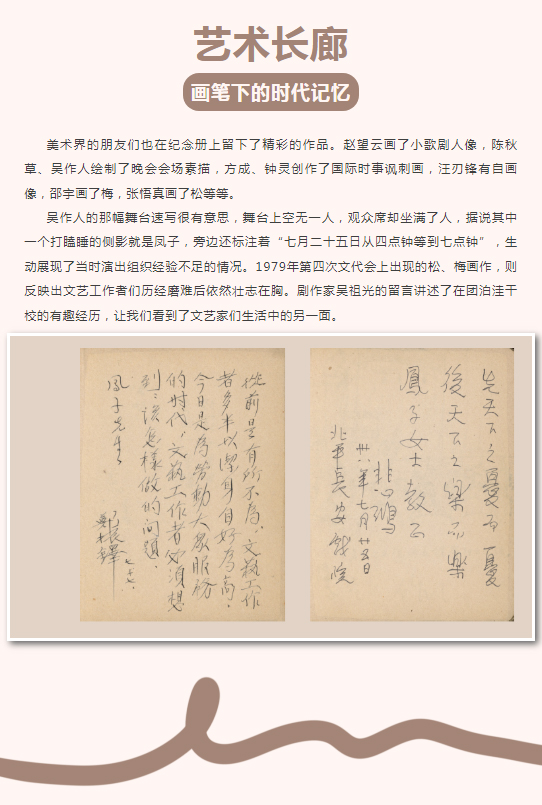 艺术长廊
画笔下的时代记忆
美术界的朋友们也在纪念册上留下了精彩的作品。赵望云画了小歌剧人像，陈秋
草、吴作人绘制了晚会会场素描，方成、钟灵创作了国际时事讽刺画，汪刃锋有自画
像，邵宇画了梅，张悟真画了松等等。
吴作人的那幅舞台速写很有意思，舞台上空无一人，观众席却坐满了人，据说其中
一个打瞌睡的侧影就是凤子，旁边还标注着“七月二十五日从四点钟等到七点钟”，生
动展现了当时演出组织经验不足的情况。1979年第四次文代会上出现的松、梅画作，则
反映出文艺工作者们历经磨难后依然壮志在胸。剧作家吴祖光的留言讲述了在团泊洼干
校的有趣经历，让我们看到了文艺家们生活中的另一面。
先天下之憂而憂
後天下之樂而樂
鳳子女士教正
悲鴻
卅八年七月廿五日
北平長安戲院
從前是有所不為，文藝工作
者多半以潔身自好為高，
今日是為勞動大眾服務
的时代，文藝工作者必須想
到：該怎樣做的问題。
鳳子先生
葉淺予